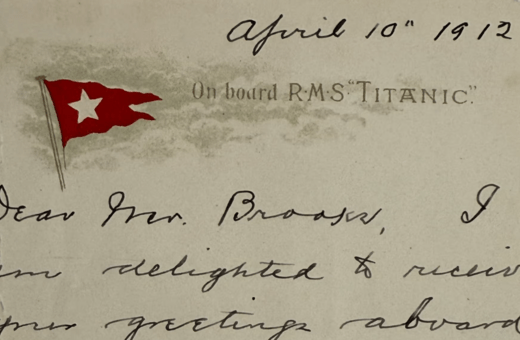 April 10" 1912
On board R·M·S "TITANIC."
Dear Mr. Brooks, I
am delighted to receiv
your greetings aboard